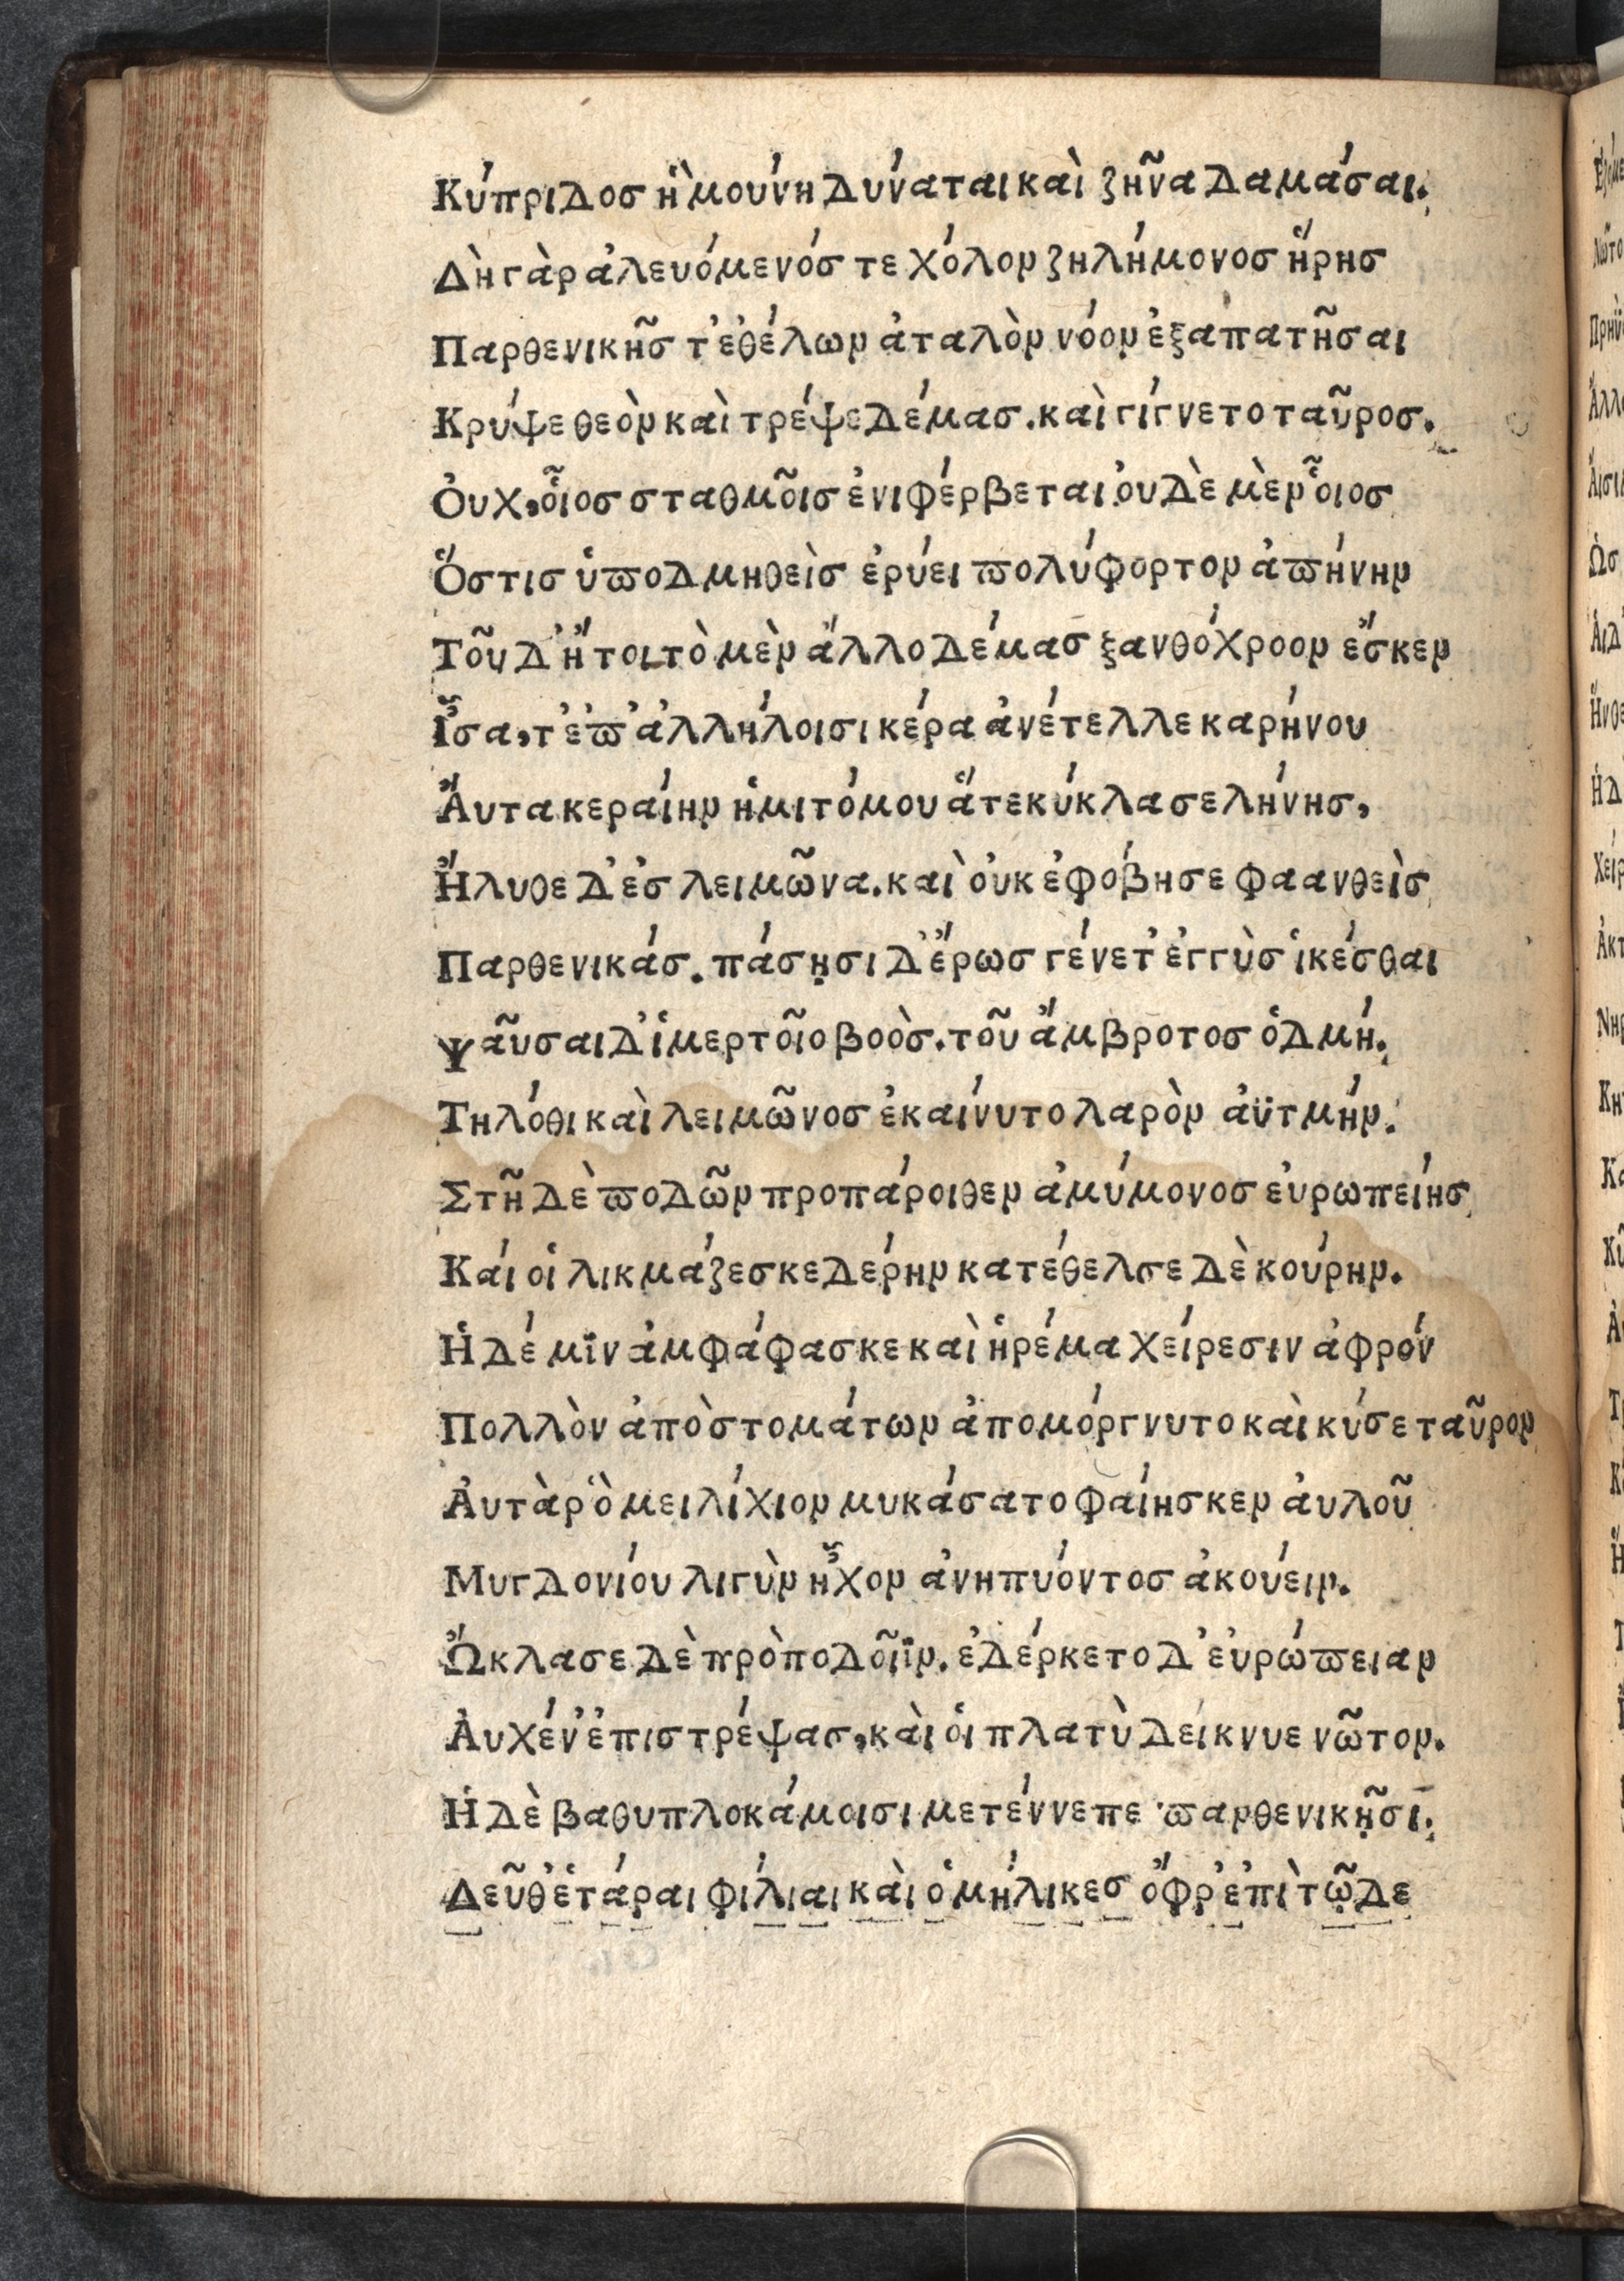 Κύπριδοσ ἣ μούνη δύναται καὶ ζῆνα δαμάσαι.
Δὴ γὰρ ἀλευόμενόσ τε χόλον ζηλήμονοσ ἥρησ
Παρθενικῆσ τ᾽ ἐθέλων ἀταλὸν νόον ἐξαπατῆσαι
Κρύψε θεὸν καὶ τρέψε δέμασ. καὶ γίγνετο ταῦροσ.
Ὀυχ, οἷοσ σταθμοῖσ ἐνιφέρβεται ὀυδὲ μὲν οἷοσ
Ὅστισ ὑποδμηθεὶσ ἐρύει πολύφορτον ἀπήνην
Τοῦ δ᾽ ἤτοι τὸ μὲν ἄλλο δέμασ ξανθόχροον ἔσκεν
Ἶσα, τ᾽ ἐπ᾽ ἀλλήλοισι κέρα ἀνέτελλε καρήνου
Ἄυτα κεραίην ἡμιτόμου ἅτε κύκλα σελήνησ,
Ἤλυθε δ᾽ ἐσ λειμῶνα. καὶ ὀυκ ἐφόβησε φαανθεὶσ
Παρθενικάσ. πάσῃσι δ᾽ ἔρωσ γένετ᾽ ἐγγὺσ ἱκέσθαι
Ψαῦσαι δ᾽ ἱμερτοῖο βοὸσ. τοῦ ἄμβροτοσ ὀδμή.
Τηλόθι καὶ λειμῶνοσ ἐκαίνυτο λαρὸν ἀϋτμήν.
Στῆ δὲ ποδῶν προπάροιθεν ἀμύμονοσ ἐυρωπείησ
Κάι οἱ λικμάζεσκε δέρην κατέθελσε δὲ κούρην.
Ἡ δέ μὶν ἀμφάφασκε καὶ ἠρέμα χείρεσιν ἀφρόν
Πολλὸν ἀπὸ στομάτων ἀπομόργνυτο καὶ κύσε ταῦρον
Ἀυτὰρ ὃ μειλίχιον μυκάσατο φαίησκεν ἀυλοῦ
Μυγδονίου λιγὺν ἦχον ἀνηπυόντοσ ἀκούειν.
Ὤκλασε δὲ πρὸ ποδοῖϊν. ἐδέρκετο δ᾽ ἐυρώπειαν
Ἀυχέν᾽ ἐπιστρέψασ, κὰι ὁι πλατὺ δείκνυε νῶτον.
Ἡ δὲ βαθυπλοκάμοισι μετέννεπε παρθενικῇσι.
Δεῦθ᾽ ἑτάραι φίλιαι κὰι ὁμήλικεσ ὄφρ᾽ ἐπὶ τῷδε